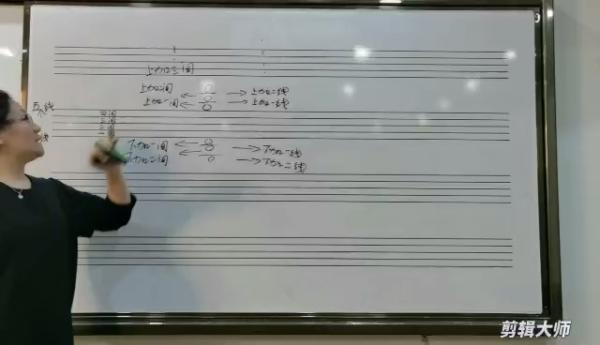 上加三间
上加二间 上加二线
上加一间 上加一线
五 线
四间
三间
二间
下加一间 下加一线
下加二间 下加二线
剪辑大师